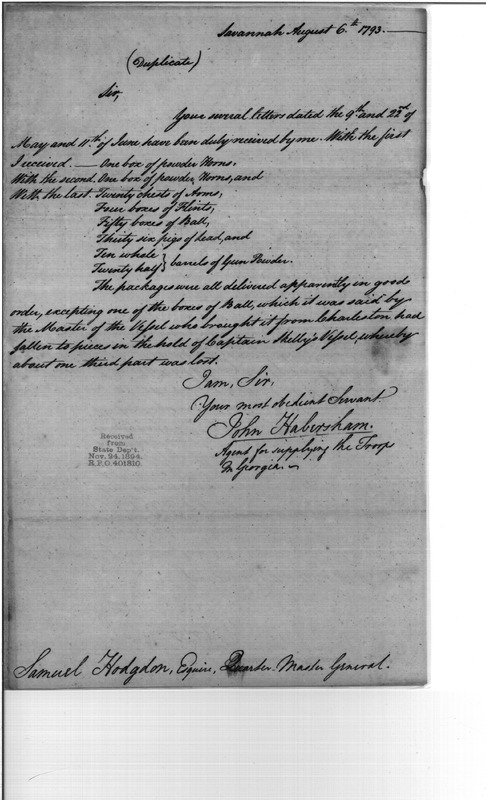 Savannah August 6.th 1793.
(Duplicate)
Sir,
Your several letters dated the 9th and 22d of
May and 11th of June have been duly received by me. With the first
I received. — One box of powder Horns.
With the second. One box of powder Horns, and
With the last Twenty chests of Arms,
Four boxes of Flints,
Fifty boxes of Ball,
Thirty six pigs of Lead, and
Ten whole
Twenty half } barrels of Gun Powder.
The packages were all delivered apparently in good
order, excepting one of the boxes of Ball, which it was said by
the Master of the Vessel who brought it from Charleston had
fallen to pieces in the hold of Captain Skelly's Vessel, whereby
about one third part was lost.
I am, Sir,
Your most obedient Servant.
John Habersham.
Agent for supplying the Troops
In Georgia.
Received
from
State Dep't.
Nov. 24, 1894.
R.P.O. 401810.
Samuel Hodgdon, Esquire, Quarter Master General.